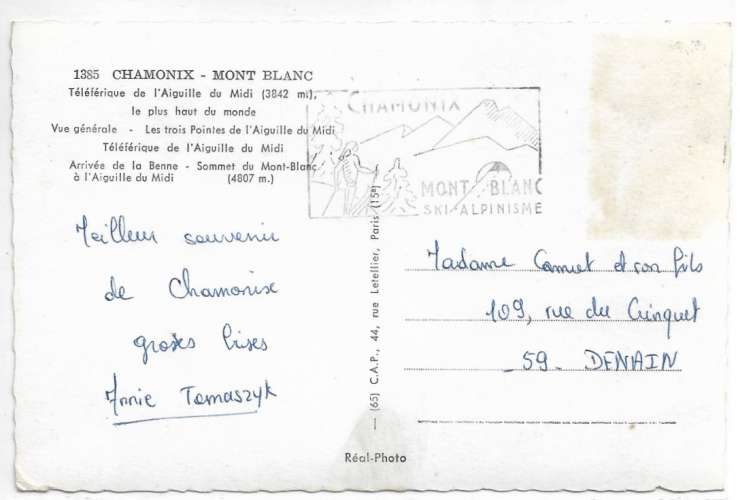 1385 CHAMONIX - MONT BLANC
Téléférique de l'Aiguille du Midi (3842 m),
le plus haut du monde
Vue générale - Les trois Pointes de l'Aiguille du Midi
Téléférique de l'Aiguille du Midi
Arrivée de la Benne - Sommet du Mont-Blanc
à l'Aiguille du Midi (4807 m.)
CHAMONIX
MONT BLANC
SKI-ALPINISME
Meilleur souvenir
de Chamonix
groses bises
Annie Tomaszyk
— (65) C.A.P., 44, rue Letellier, Paris (15e)
Madame et son fils
109, rue du
59. DENAIN
Réal-Photo